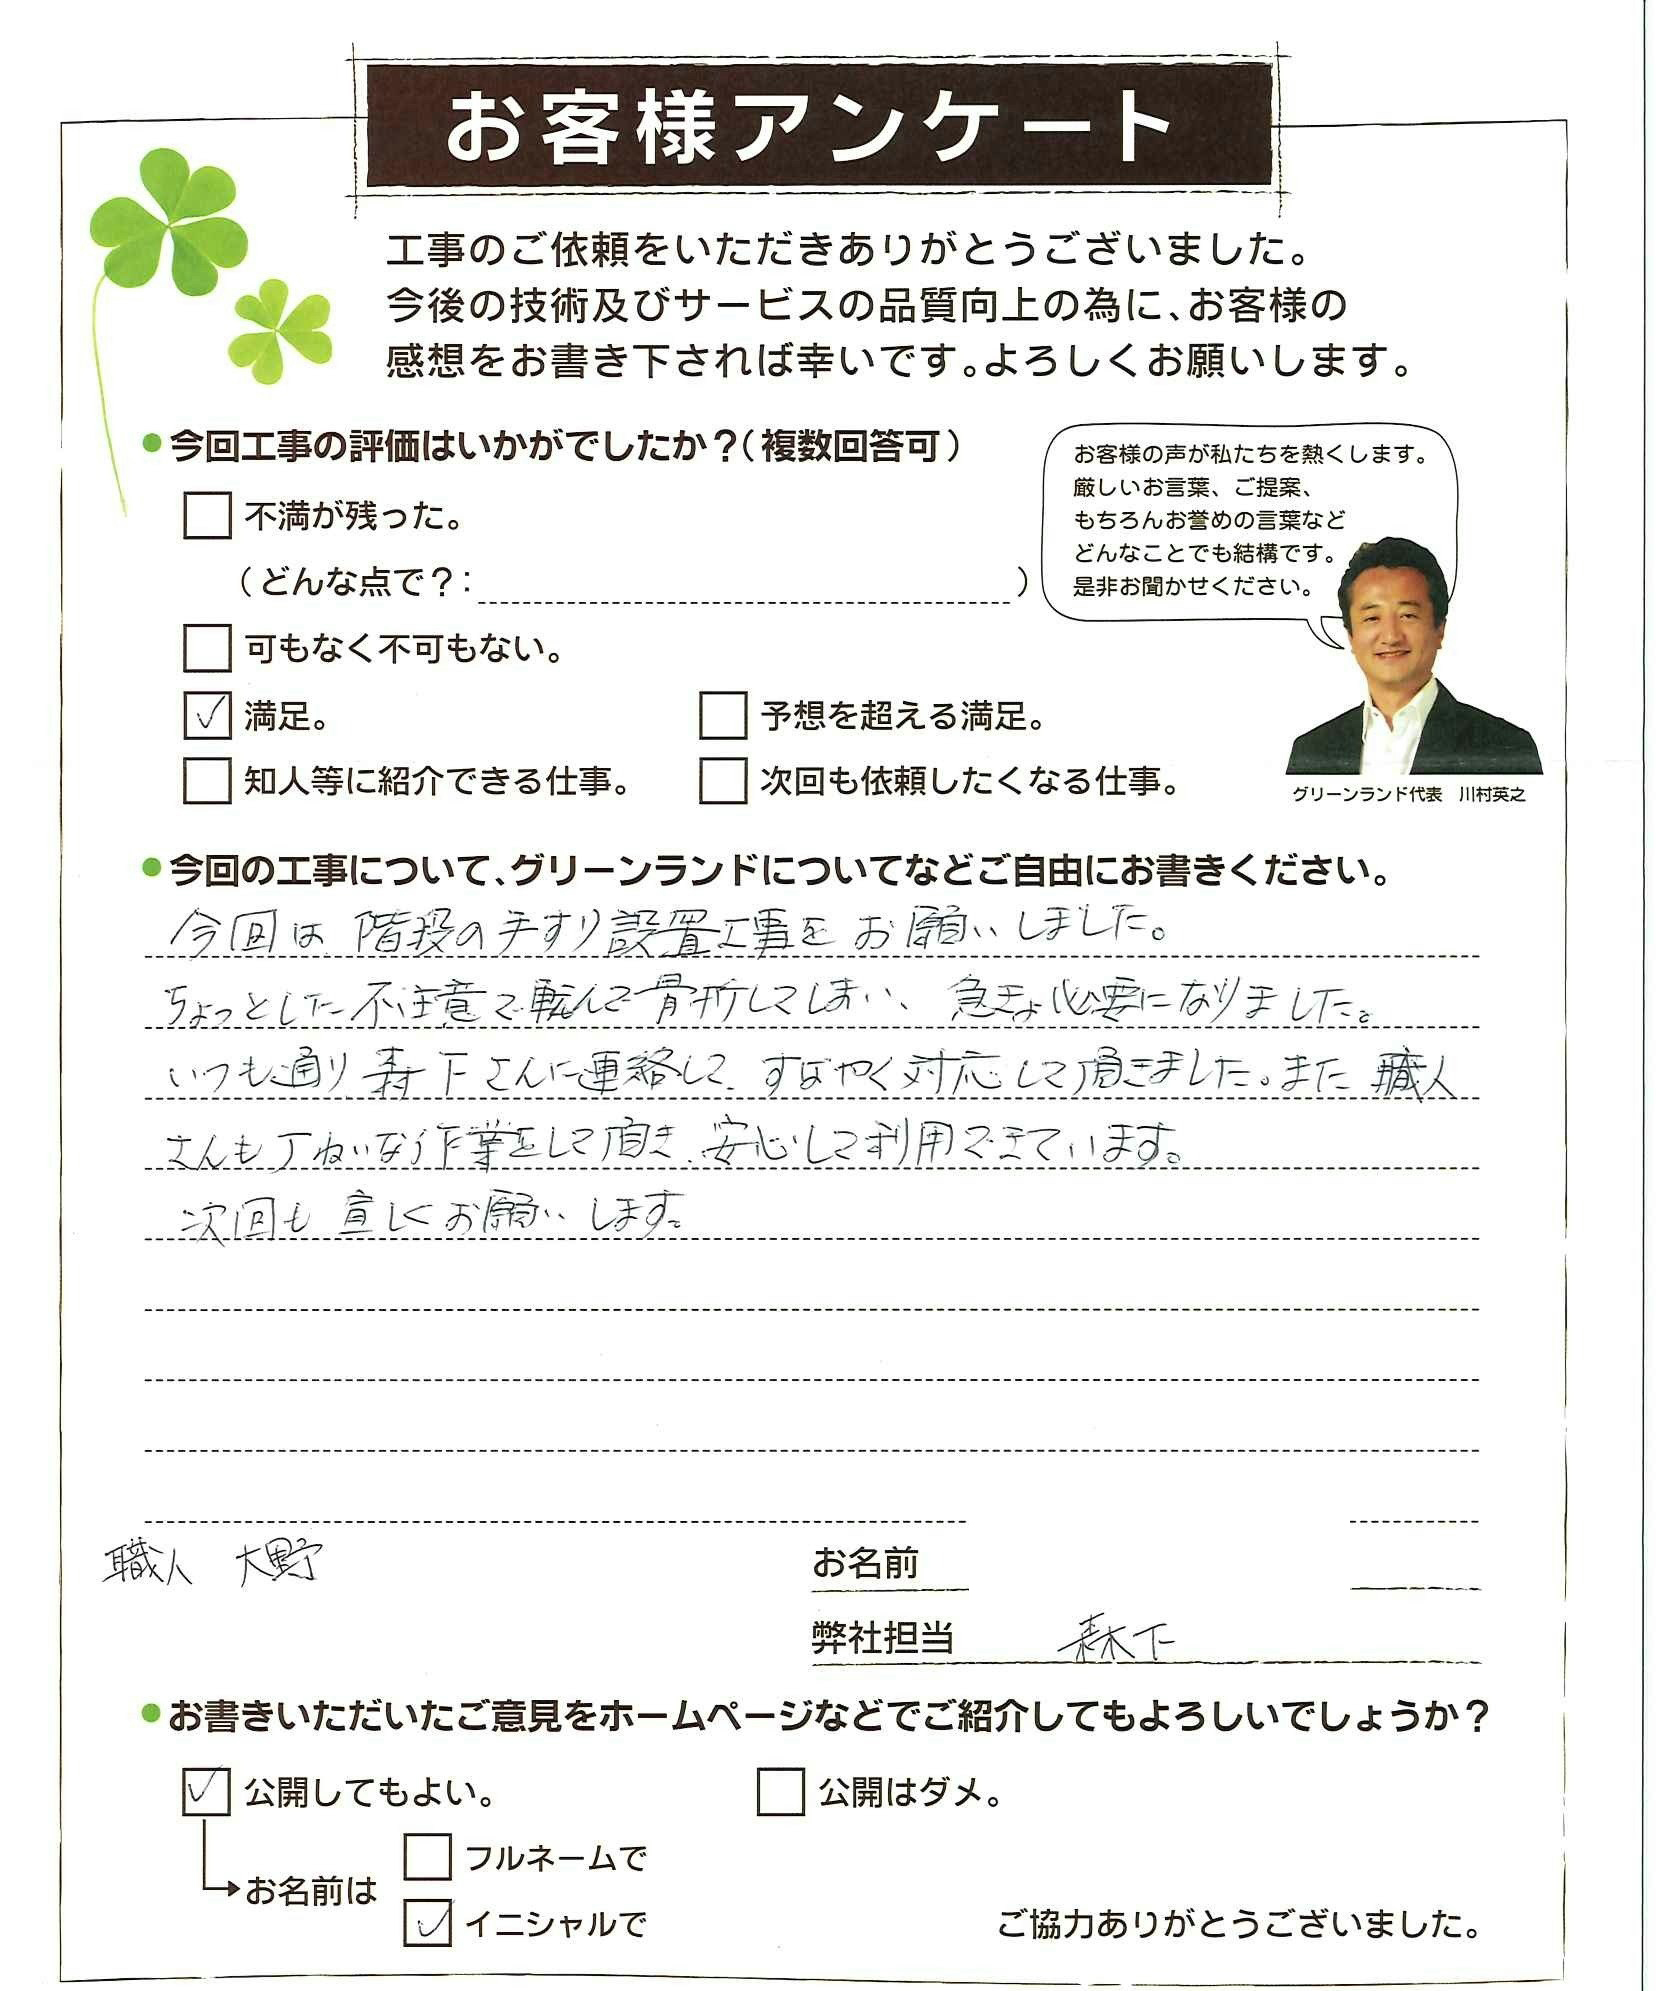 お客様アンケート
工事のご依頼をいただきありがとうございました。
今後の技術及びサービスの品質向上の為に、お客様の
感想をお書き下されば幸いです。よろしくお願いします。
●今回工事の評価はいかがでしたか？（複数回答可）
お客様の声が私たちを熱くします。
厳しいお言葉、ご提案、
もちろんお誉めの言葉など
どんなことでも結構です。
是非お聞かせください。
不満が残った。
（どんな点で？：　）
可もなく不可もない。
✓ 満足。　予想を超える満足。
知人等に紹介できる仕事。　次回も依頼したくなる仕事。
グリーンランド代表　川村英之
●今回の工事について、グリーンランドについてなどご自由にお書きください。
今回は 階段の手すり設置工事を お願いしました。
ちょっとした不注意で転んで骨折してしまい、急きょ必要になりました。
いつも通り 森下さんに連絡して、すばやく対応して頂きました。また 職人
さんも丁ねいな作業をして頂き、安心して利用できています。
次回も 宜しくお願いします。
職人　大野
お名前
弊社担当　森下
●お書きいただいたご意見をホームページなどでご紹介してもよろしいでしょうか？
✓ 公開してもよい。　公開はダメ。
フルネームで
お名前は
✓ イニシャルで
ご協力ありがとうございました。